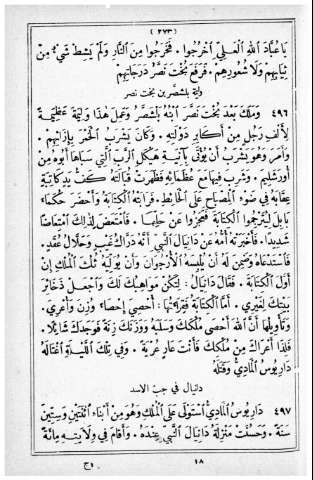 (٢٧٣)
يَا عُبَّادَ اللّٰهِ الْعَلِيِّ اخْرُجُوا. فَخَرَجُوا مِنَ النَّارِ وَلَمْ يَشِطْ شَيْءٌ مِنْ
ثِيَابِهِمْ وَلَا شُعُورِهِمْ. فَرَفَعَ بُخْتَ نَصَّرُ دَرَجَاتِهِمْ
وليمة بلشصر بن بخت نصر
٤٩٦ وَمَلَكَ بَعْدَ بُخْتَ نَصَّرَ ابْنُهُ بَلْشَصَّرُ وَعَمِلَ هٰذَا وَلِيمَةً عَظِيمَةً
لِأَلْفِ رَجُلٍ مِنْ أَكَابِرِ دَوْلَتِهِ. وَكَانَ يَشْرَبُ الْخَمْرَ بِإِزَائِهِمْ.
وَأَمَرَ وَهُوَ يَشْرَبُ أَنْ يُؤْتَى بِآنِيَةِ هَيْكَلِ الرَّبِّ الَّتِي سَبَاهَا أَبُوهُ مِنْ
أُورَشَلِيمَ. وَشَرِبَ فِيهَا مَعَ عُظَمَائِهِ فَظَهَرَتْ قُبَالَتَهُ كَفُّ يَدٍ كَاتِبَةٍ
عِقَابَهُ فِي ضَوْءِ الْمِصْبَاحِ عَلَى الْحَائِطِ. فَرَابَتْهُ الْكِتَابَةُ وَأَحْضَرَ حُكَمَاءَ
بَابِلَ لِيُتَرْجِمُوا الْكِتَابَةَ فَعَجَزُوا عَنْ حَلِّهَا. فَامْتَعَضَ لِذٰلِكَ امْتِعَاضًا
شَدِيدًا. فَأَخْبَرَتْهُ أُمُّهُ عَنْ دَانِيَالَ النَّبِيِّ أَنَّهُ دَرَّاكُ غَيْبٍ وَحَلَّالُ عُقَدٍ.
فَاسْتَدْعَاهُ وَضَمِنَ لَهُ أَنْ يُلْبِسَهُ الْأُرْجُوَانَ وَأَنْ يُوَلِّيَهُ ثُلْثَ الْمُلْكِ إِنْ
أَوَّلَ الْكِتَابَةَ. فَقَالَ دَانِيَالُ: لِتَكُنْ مَوَاهِبُكَ لَكَ وَاجْعَلْ ذَخَائِرَ
بَيْتِكَ لِغَيْرِي. أَمَّا الْكِتَابَةُ فَقِرَاءَتُهَا: أُحْصِيَ إِحْصَاءً وَوُزِنَ وَأُعْرِيَ.
وَتَأْوِيلُهَا أَنَّ اللّٰهَ أَحْصَى مُلْكَكَ وَسَلَبَهُ وَوَزَنَكَ زِنَةً فَوَجَدَكَ شَائِلًا.
فَلِذَا أَعْرَاكَ مِنْ مُلْكِكَ فَأَنْتَ عَارٍ عُرْيَةً. وَفِي تِلْكَ اللَّيْلَةِ اغْتَالَهُ
دَارِيُوسُ الْمَادِيُّ وَقَتَلَهُ
دانيال في جب الاسد
٤٩٧ دَارِيُوسُ الْمَادِيُّ اسْتَوْلَى عَلَى الْمُلْكِ وَهُوَ مِنْ أَبْنَاءِ اثْنَتَيْنِ وَسِتِّينَ
سَنَةً. وَحَسُنَتْ مَنْزِلَةُ دَانِيَالَ النَّبِيِّ عِنْدَهُ. وَأَقَامَ فِي وِلَايَتِهِ مِائَةً
١٨ ج١